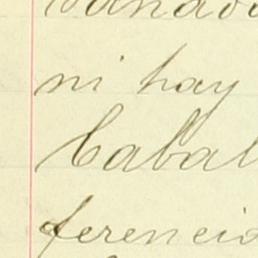 ni hay
Cabal
ferencia